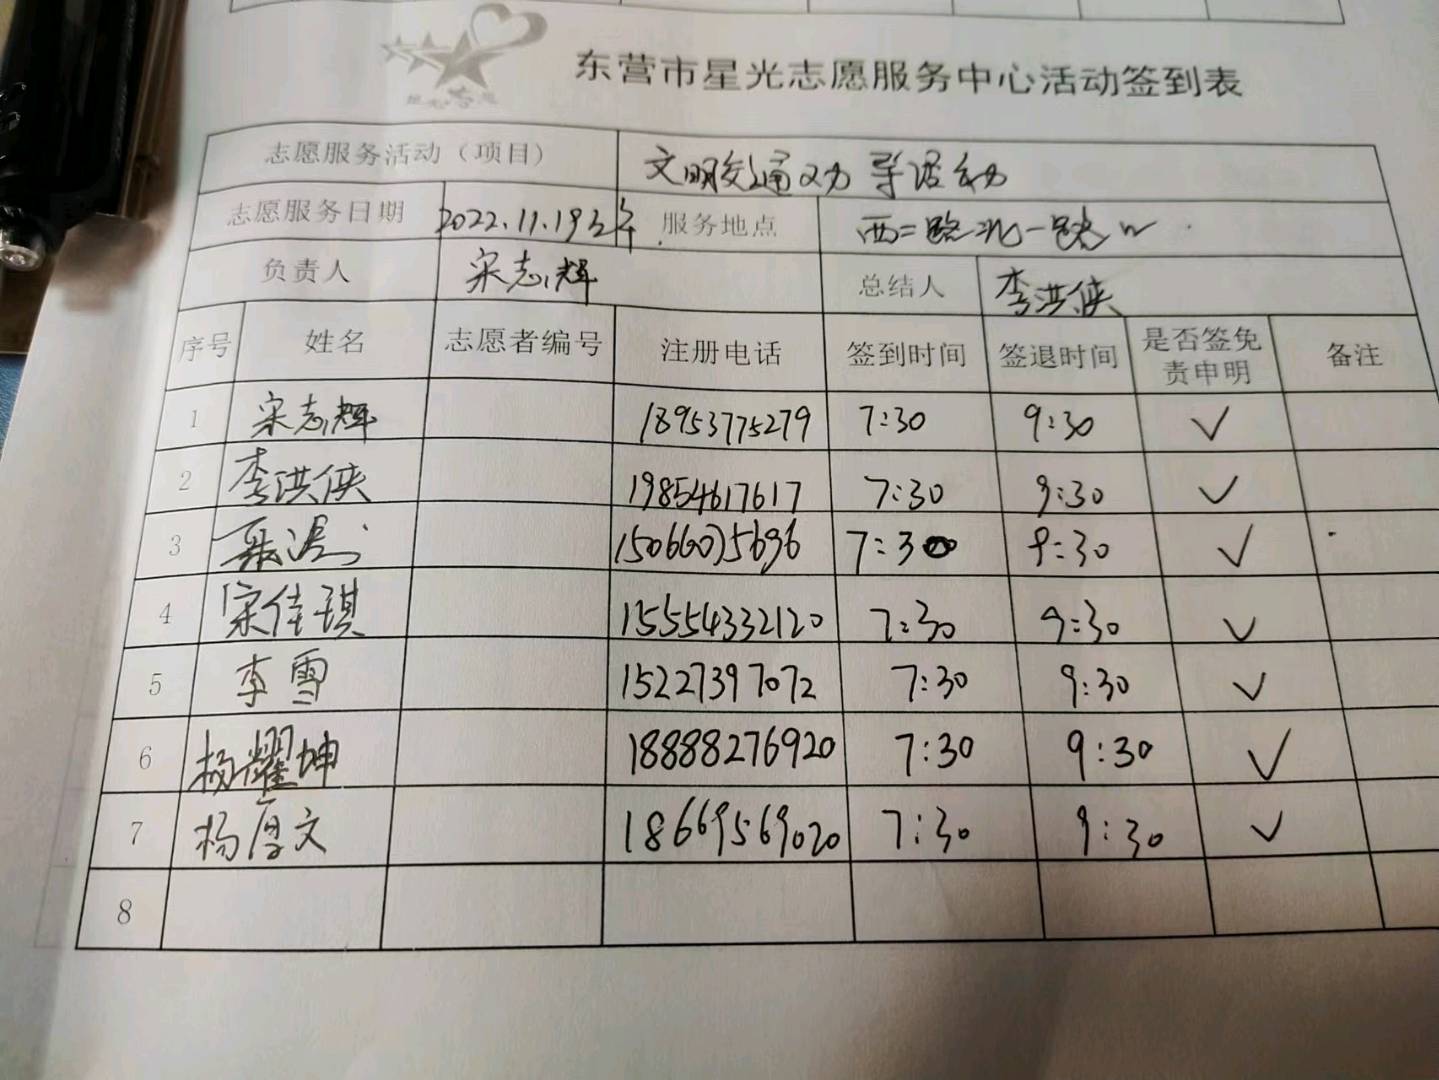 东营市星光志愿服务中心活动签到表
志愿服务活动（项目） 文明交通劝导活动
志愿服务日期 2022.11.19 服务地点 西二路北一路
负责人 宋志辉 总结人 李洪侠
序号 姓名 志愿者编号 注册电话 签到时间 签退时间 是否签免责申明 备注
1 宋志辉 18953775279 7:30 9:30 ✓
2 李洪侠 19854617617 7:30 9:30 ✓
3 7:30 9:30 ✓
4 宋佳琪 15554332120 7:30 9:30 ✓
5 李雪 15227397072 7:30 9:30 ✓
6 杨耀坤 18888276920 7:30 9:30 ✓
7 杨厚文 18669569020 7:30 9:30 ✓
8